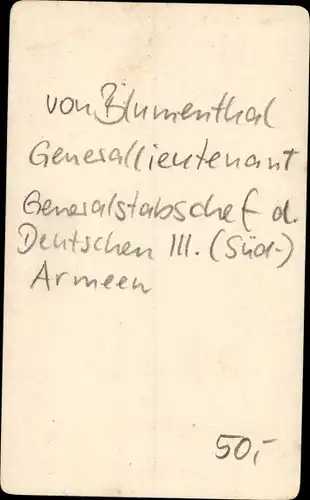 von Blumenthal
Generallieutenant
Generalstabschef d.
Deutschen III. (Süd-)
Armeen
50,-